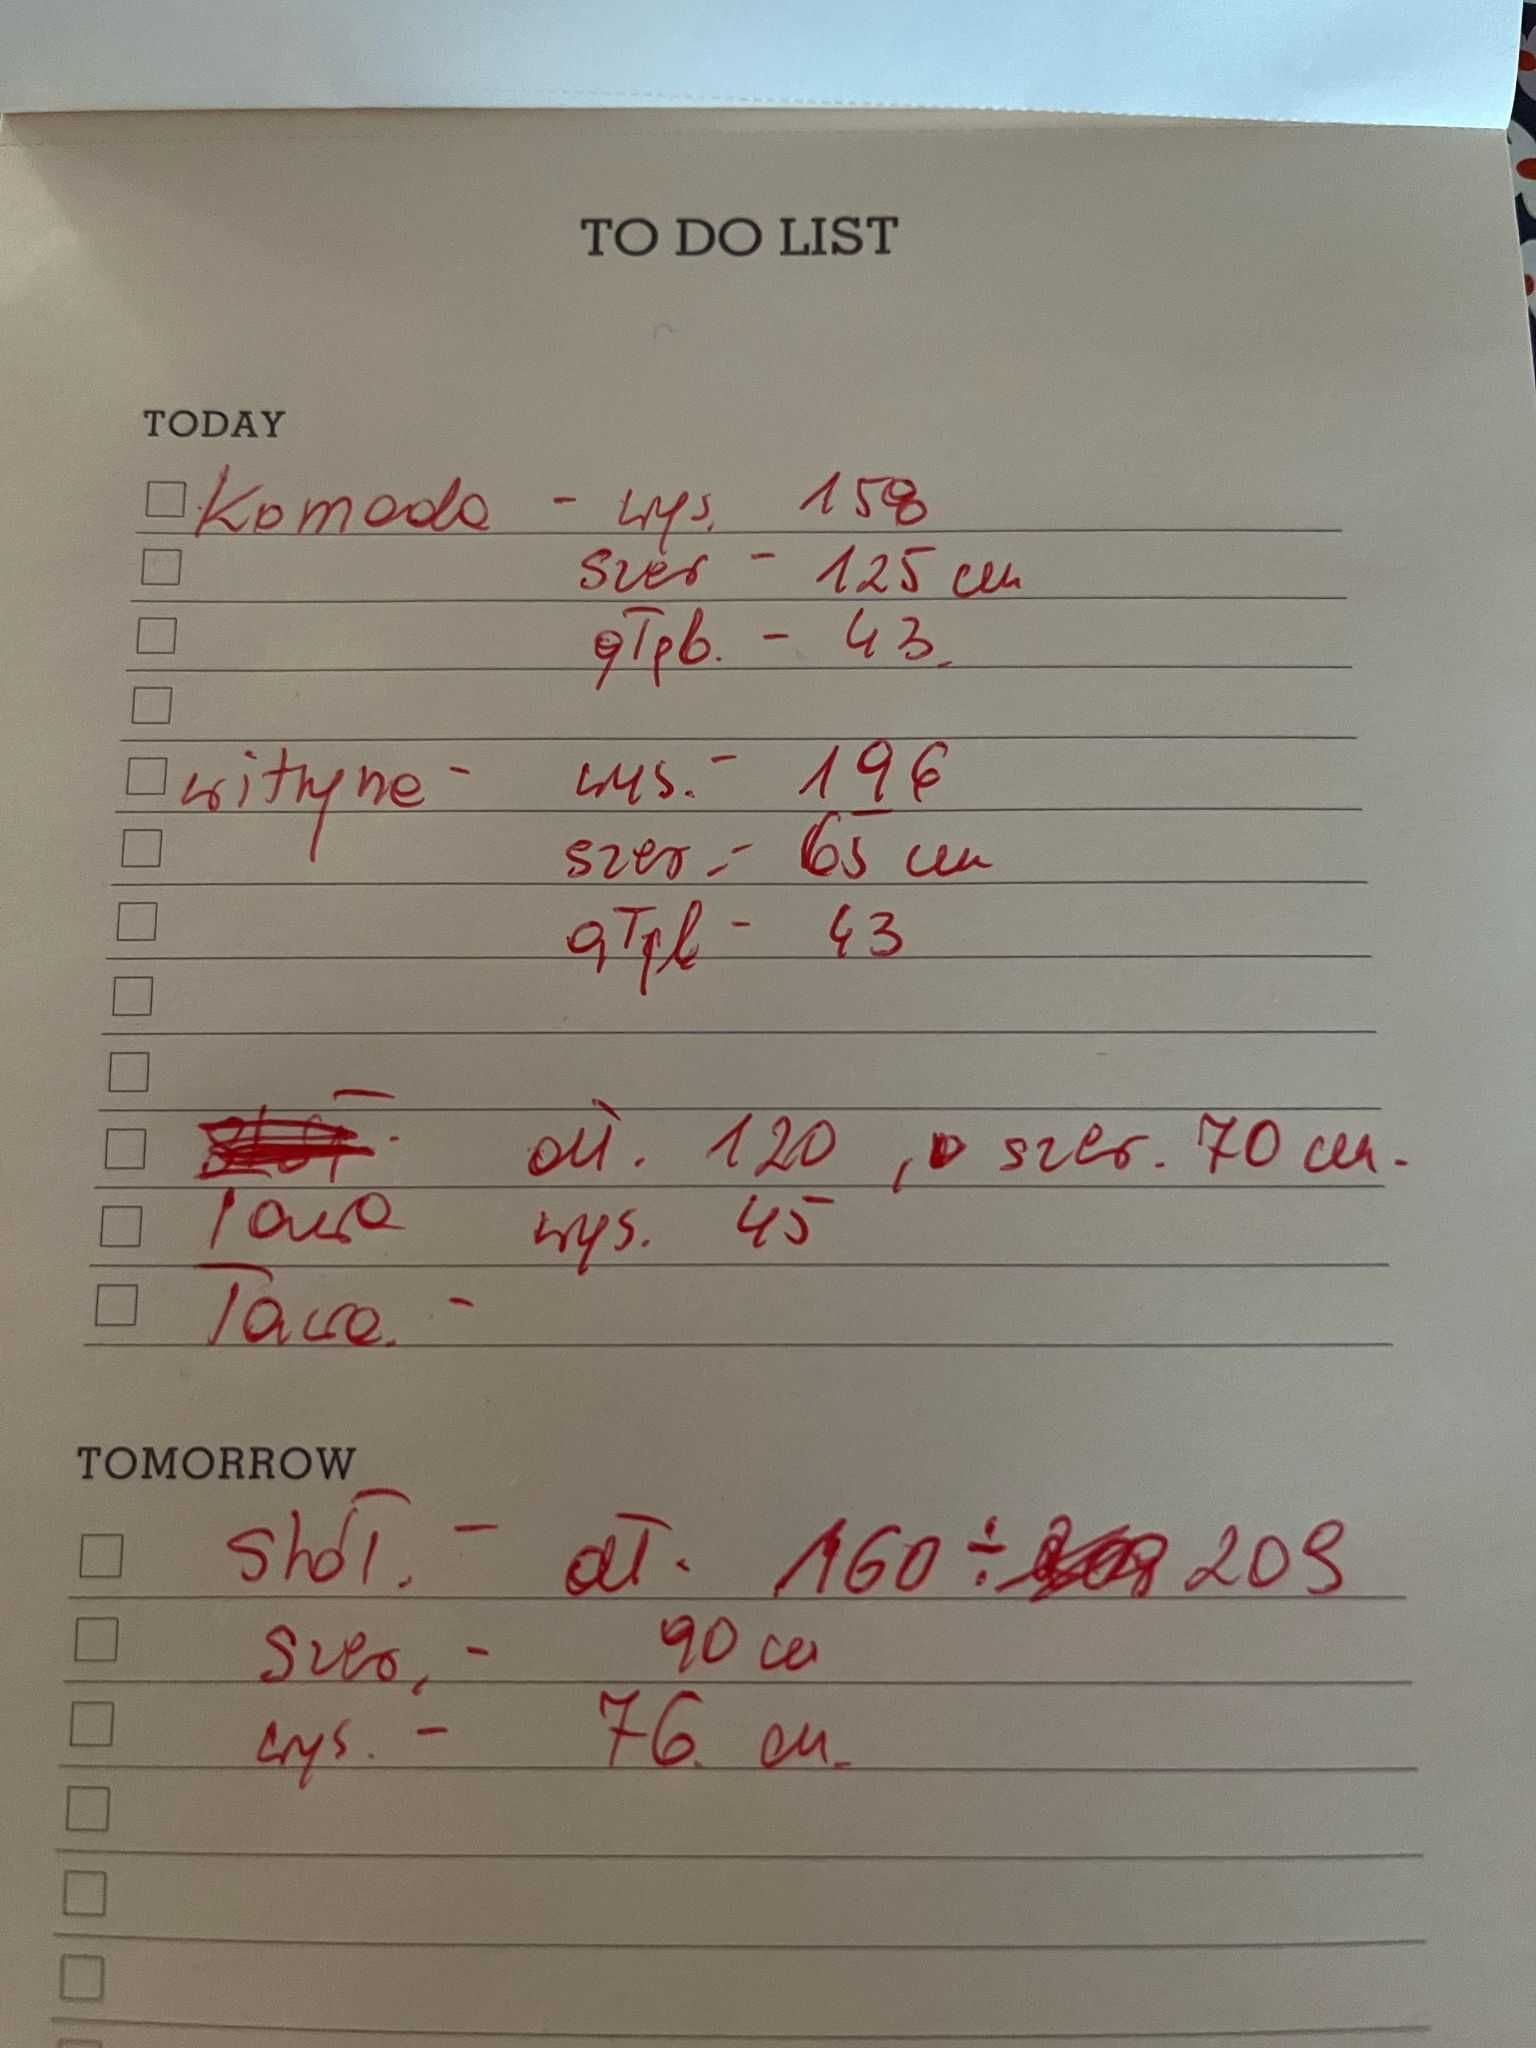 TO DO LIST
TODAY
Komoda - wys. 158
szer - 125 cm
głęb. - 43.
witryna - wys. - 196
szer. - 65 cm
głęb - 43
dł. 120, szer. 70 cm.
Ława wys. 45
Ława. -
TOMORROW
Stół. - dł. 160 ÷ 209
szer. - 90 cm
wys. - 76 cm.